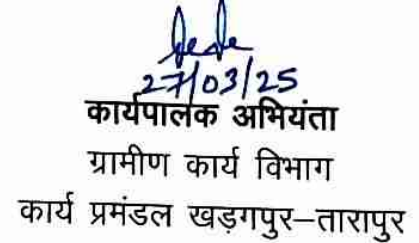 27/03/25
कार्यपालक अभियंता
ग्रामीण कार्य विभाग
कार्य प्रमंडल खड़गपुर–तारापुर